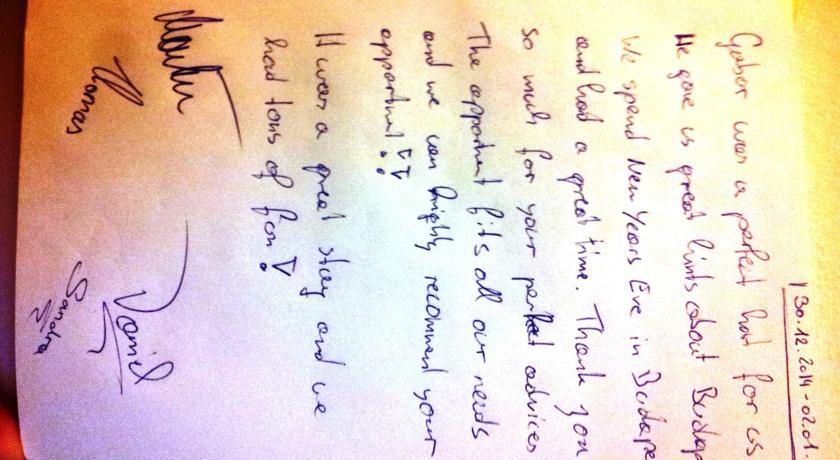 30.12.2014-02.01.
Gabor was a perfect host for us
He gave is great hints about Budap
We spend New Years Eve in Budape
and had a great time. Thank you
so much for your perfect advices
The appartment fits all our needs
and we can highly recommend your
appartment!!
It was a great stay and we
had tons of fun!
Martin
Thomas
Daniel
Sandra